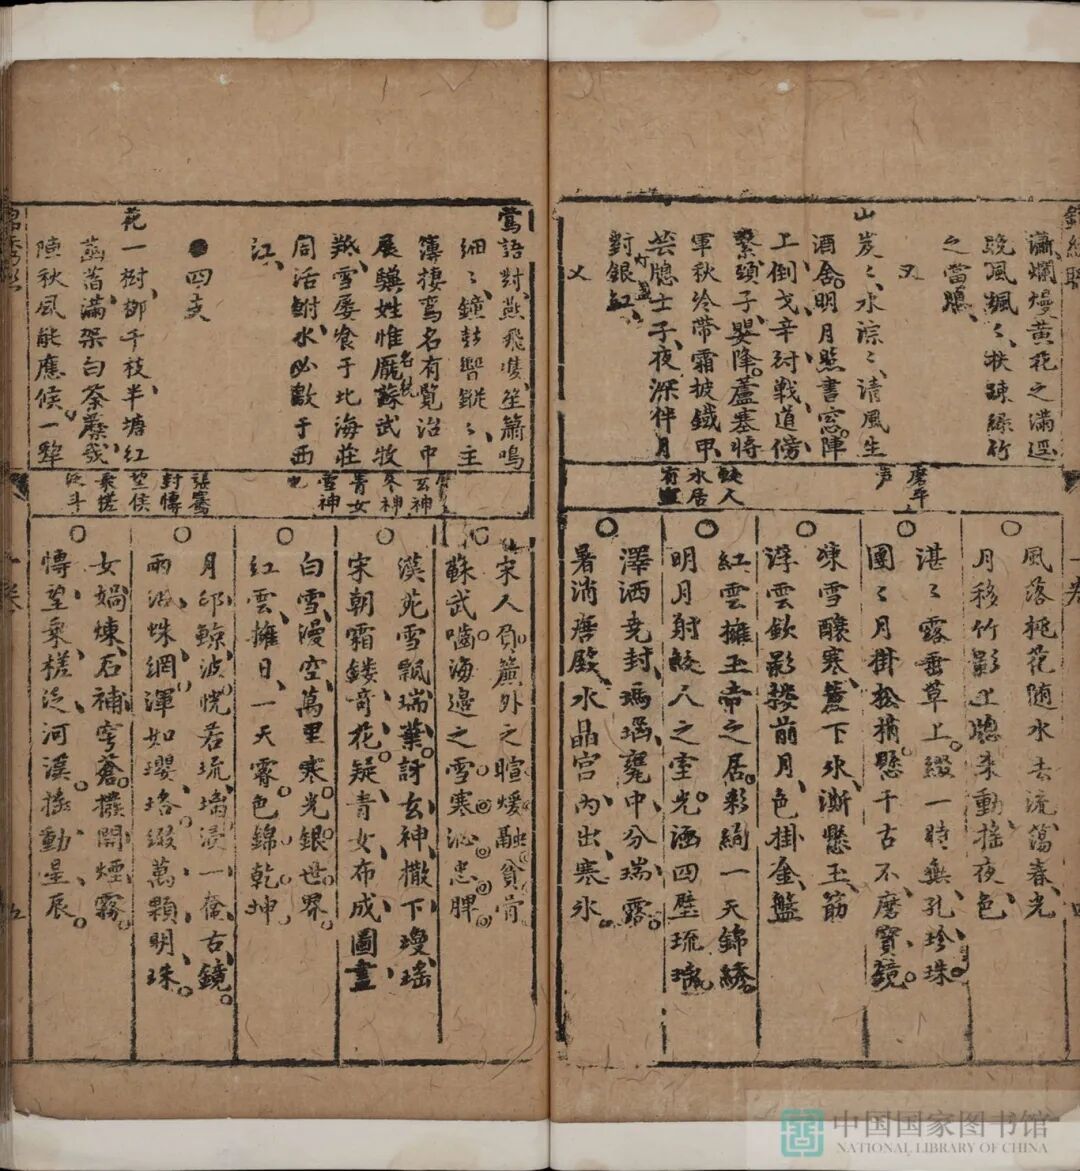 瀟、爛熳黃花之滿逕、
晚風颯〻、扶疎綠竹
之當牕、
又
山炭〻、水淙〻、清風生
酒舍。明月照書窓。陣
上倒戈、辛討戰、道傍
繫頸、子嬰降。蘆塞將
軍、秋冷帶霜披鐵甲、
芸牕士子、夜深伴月
對銀缸、
灯盞
又
磨平
聲
鮫人
水居
有室
風落桃花随水去、流蕩春光
月移竹影上牕來、動搖夜色
湛〻露垂草上。綴一時無孔珍珠。
團〻月掛松梢。懸千古不磨寶鏡。
凍雪釀寒、簷下氷澌懸玉筯
浮雲欽影、樓前月色掛金盤
紅雲擁玉帝之居。彩絢一天錦綉。
明月射鮫人之室。光涵四壁琉璃。
澤洒堯封、瑪瑙甕中分瑞露。
暑消唐殿、水晶宮內出寒氷。
鶯語對燕飛、雙、笙簫鳴
細〻、鐘鼓響鏦〻、主
簿棲鸞名有覽、治中
展驥姓惟龐。蘇武牧
名統
羝、雪屢飡于北海、莊
周活鮒、水必歡于西
江、
●四支
花一樹、柳千枝、半塘紅
菡萏、滿架白荼蘼。幾
陣秋風能應候。一犂
玄神
冬神
青女
雪神
也
張騫
封博
望侯
乘槎
泛斗
宋人負簷外之暄、煖融貧骨
蘇武嚙海邊之雪、寒沁忠脾
漢苑雪飄瑞葉。訝玄神、撒下瓊瑤
宋朝霜鏤奇花。疑青女、布成圖畫
白雪漫空、萬里寒光銀世界。
紅雲擁日、一天霽色錦乾坤
月印鯨波、恍若琉璃浸一奩古鏡。
雨沾蛛網、渾如瓔珞綴萬顆明珠。
女媧煉石補穹蒼。撥開煙霧
博望乘槎泛河漢。搖動星辰。
中国国家图书馆
NATIONAL LIBRARY OF CHINA